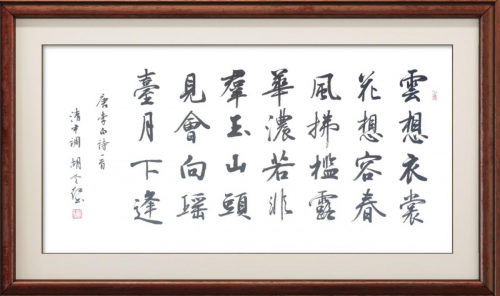 雲想衣裳
花想容春
風拂檻露
華濃若非
羣玉山頭
見會向瑶
臺月下逢
唐李白詩一首
清平調 胡